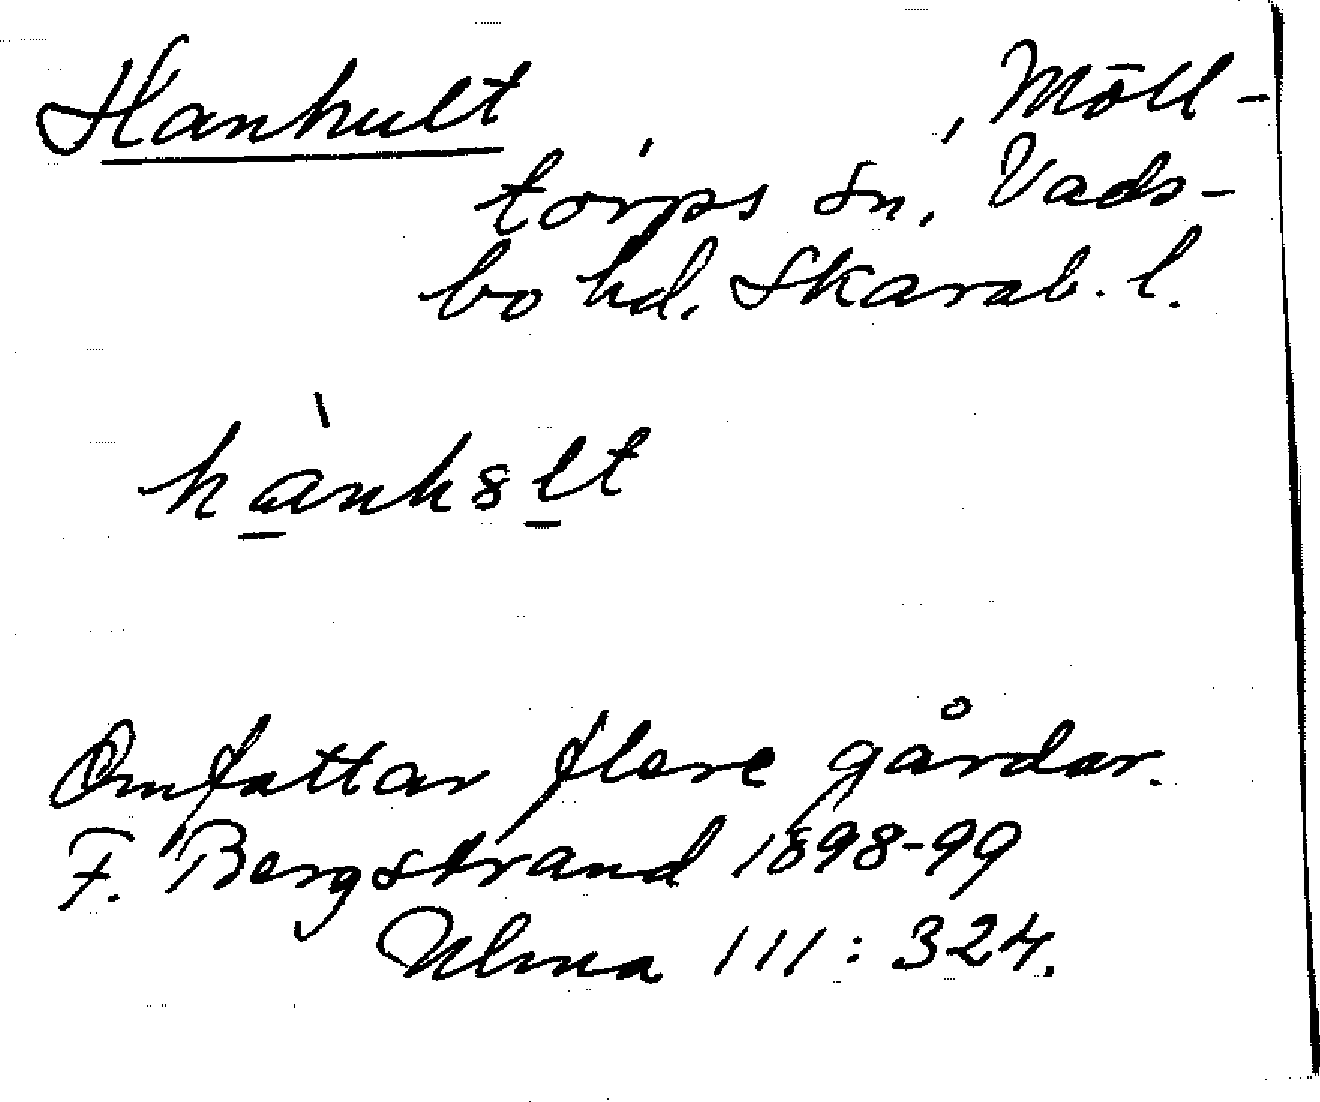 Hanhult, Möll-
torps sn, Vads-
bo hd. Skarab. l.
hành8lt
Omfattar flere gårdar.
F. Bergstrand 1898-99
Ulma 111: 324.